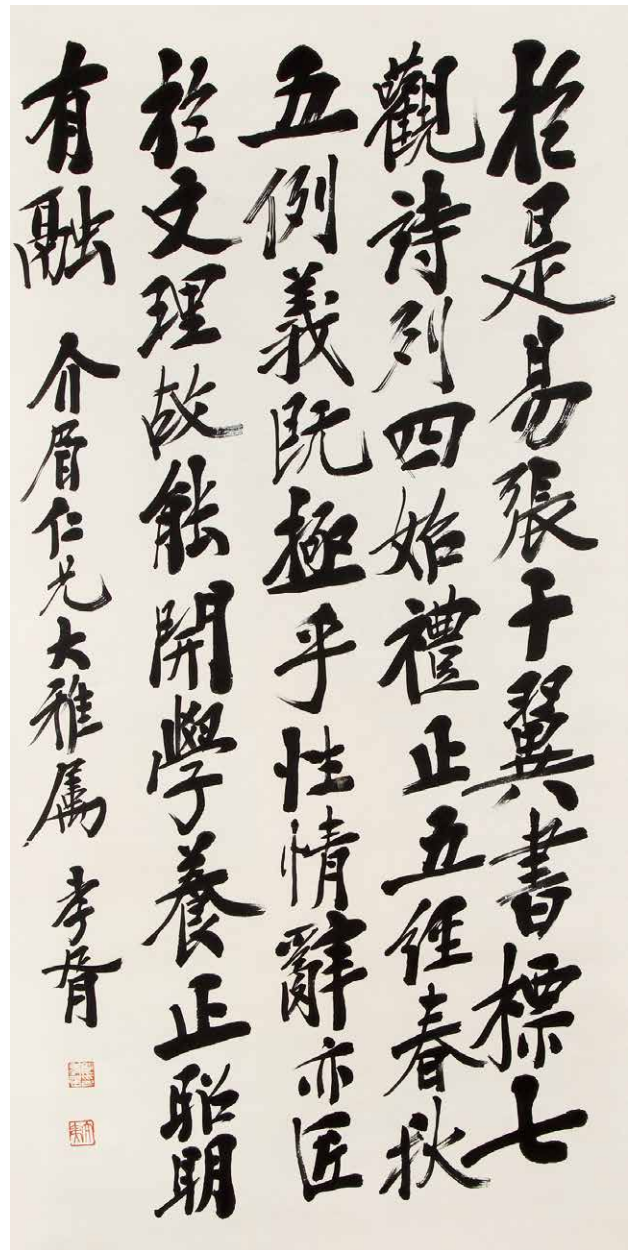 於是易張十翼書標七
觀詩列四始禮正五經春秋
五例義既極乎性情辭亦匠
於文理故能開學養正昭明
有融 介眉仁兄大雅屬 孝胥